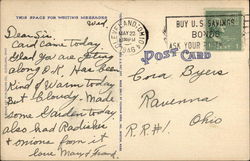 THIS SPACE FOR WRITING MESSAGES
Wed.
Dear Sis.
Card came today
Glad you are getting
along O.K. Has been
Kind of warm today
But Cloudy. Made
some Garden today
also had Radishes
& onions from it
love Mary & Frank.
CLEVELAND, OHIO
MAY 22
PM
1946
BUY U.S. SAVINGS
BONDS
ASK YOUR
POST CARD
Cora Byers
Ravenna
Ohio
R.R#1